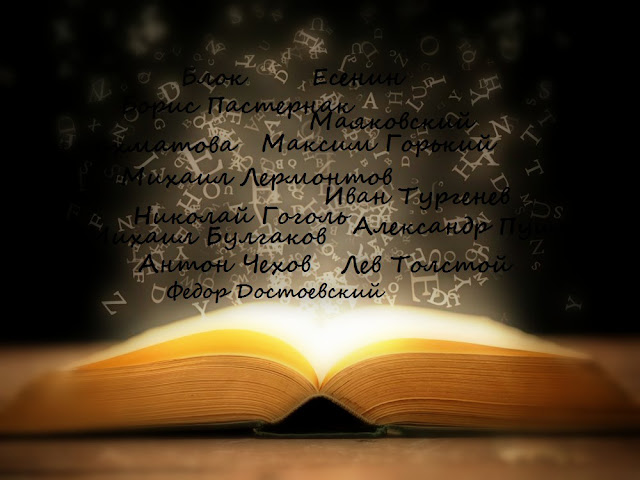 Блок Есенин
Борис Пастернак
Маяковский
Ахматова Максим Горький
Михаил Лермонтов
Иван Тургенев
Николай Гоголь
Александр
Михаил Булгаков
Антон Чехов Лев Толстой
Федор Достоевский